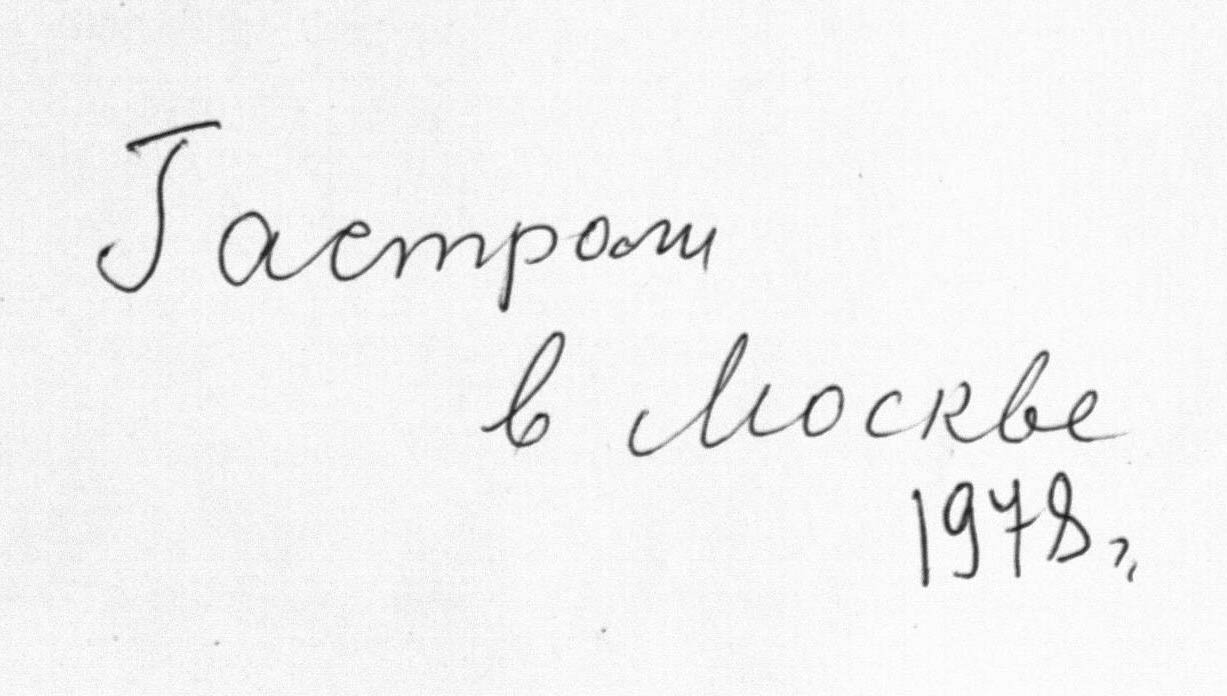 Гастроли
в Москве
1978 г.